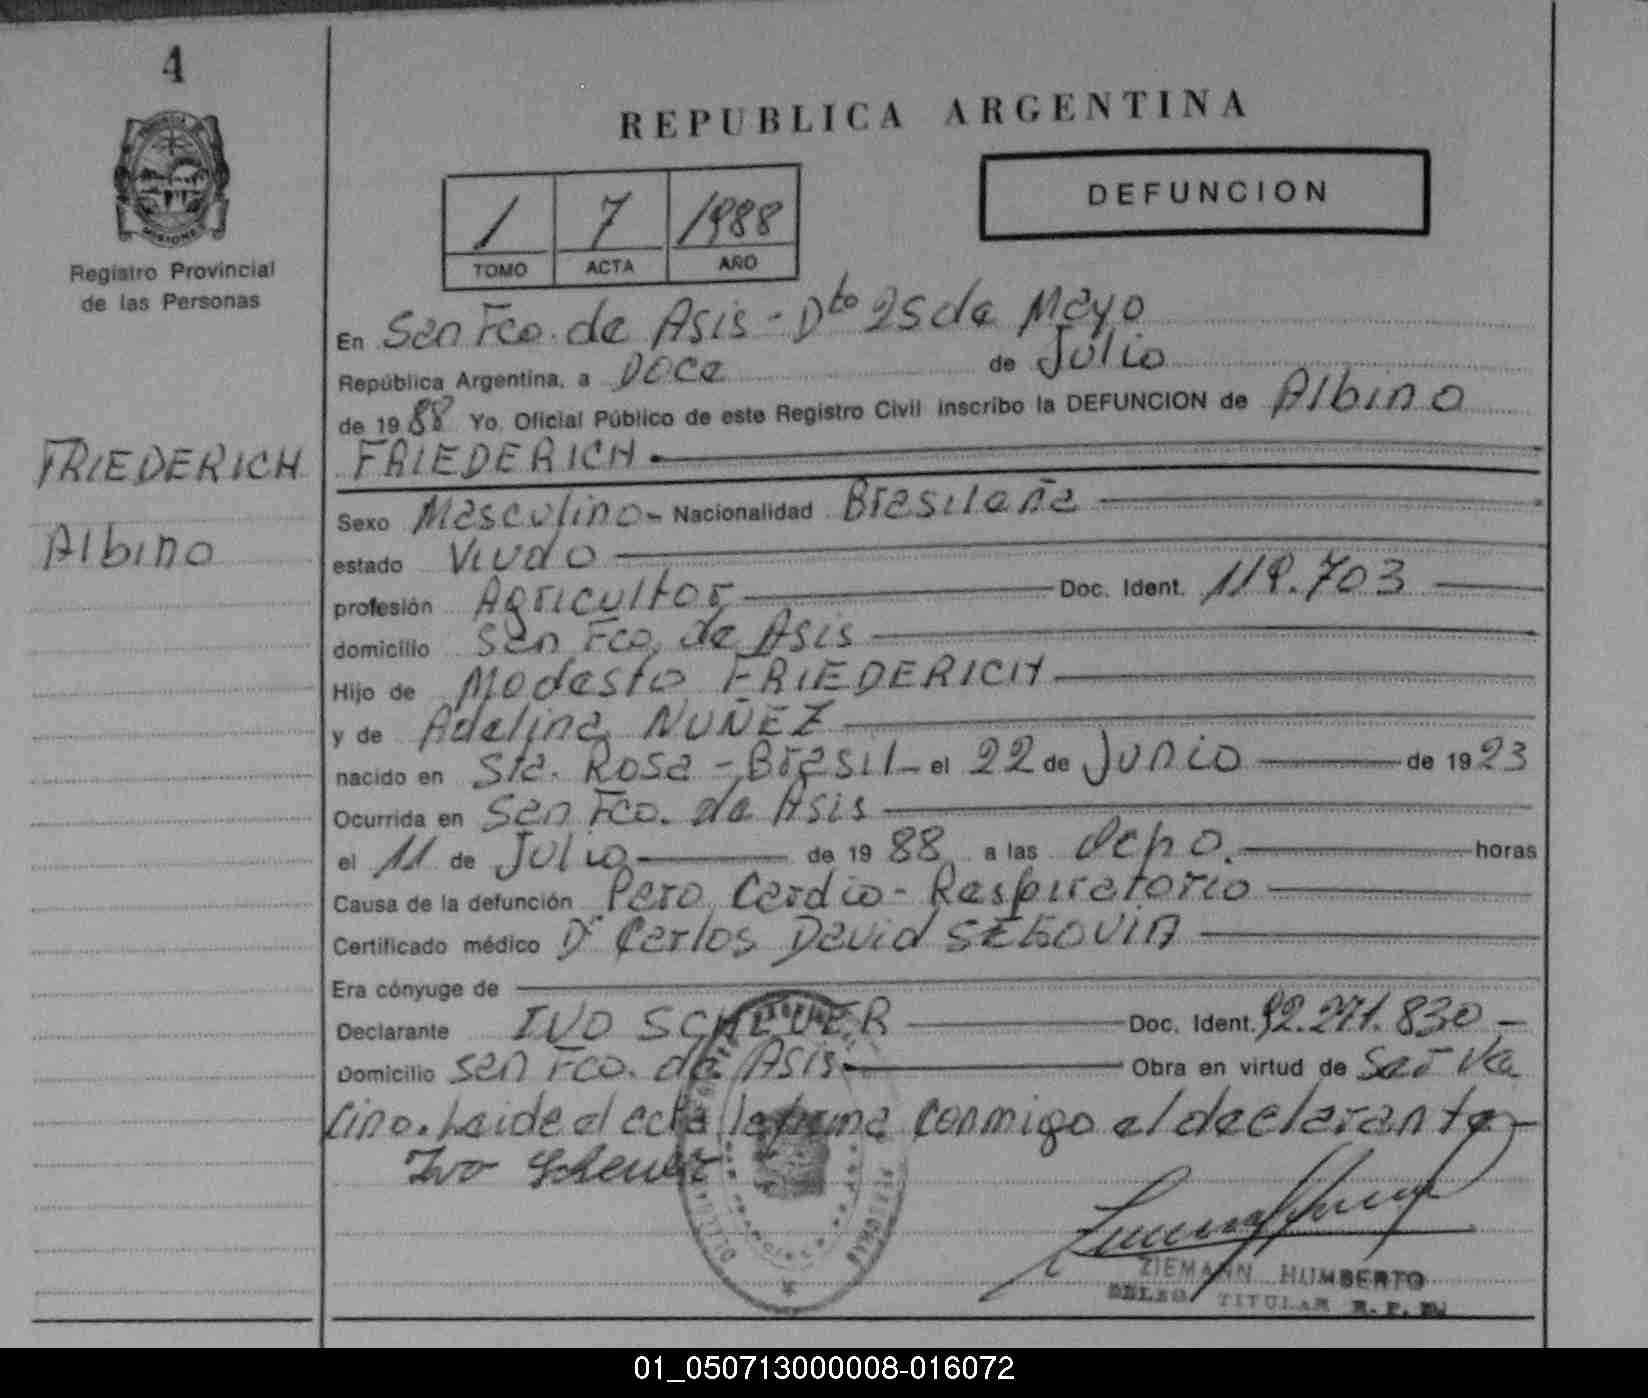 4
Registro Provincial
de las Personas
REPUBLICA ARGENTINA
1 7 1988
TOMO ACTA AÑO
DEFUNCION
En San Fco. de Asis - Dto 25 de Mayo
República Argentina, a Doce de Julio
de 1988 Yo, Oficial Público de este Registro Civil inscribo la DEFUNCION de Albino
FRIEDERICH
FRIEDERICH
Albino
Sexo Masculino - Nacionalidad Brasilaña
estado Viudo
profesión Agricultor Doc. Ident. 119.703
domicilio San Fco. de Asis
Hijo de Modesto FRIEDERICH
y de Adelina NUÑEZ
nacido en Sta. Rosa - Brasil - el 22 de Junio de 1923
Ocurrida en San Fco. de Asis
el 11 de Julio de 1988 a las horas
Causa de la defunción Paro Cardio - Respiratorio
Certificado médico Dr Carlos David SEGOVIA
Era cónyuge de
Declarante IVO SCHEUER Doc. Ident. 92.271.830 -
Domicilio San Fco. de Asis Obra en virtud de Ser Ve
cino. Leida el acta la firma conmigo el declarante
Ivo Scheuer
ZIEMANN HUMBERTO
DELEG. TITULAR R. P. P.
01_050713000008-016072